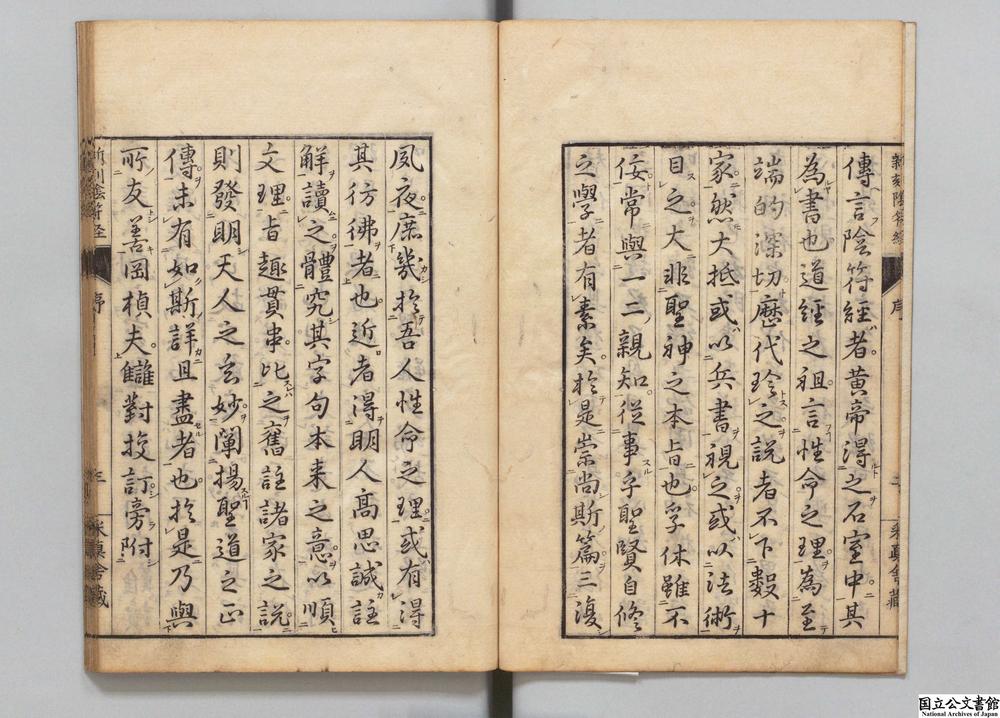 新刻陰符經
序
采真舍藏
傳言陰符經者黄帝得之石室中其
為書也道經之祖言性命之理為至
端的深切歴代珍之説者不下數十
家然大抵或以兵書視之或以法術
目之大非聖神之本旨也孚休雖不
佞常與一二親知從事乎聖賢自修
之學者有素矣於是崇尚斯篇三復
夙夜庶幾於吾人性命之理或有得
其彷彿者也近者得明人髙思誠註
解讀之體究其字句本来之意以順
文理旨趣貫串比之舊註諸家之説
則發明天人之玄妙闡揚聖道之正
傳未有如斯詳且盡者也於是乃與
所友善岡楨夫讎對挍訂旁附
新刻陰符經
序
采真舍藏
国立公文書館
National Archives of Japan